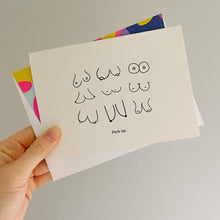 Perk up.